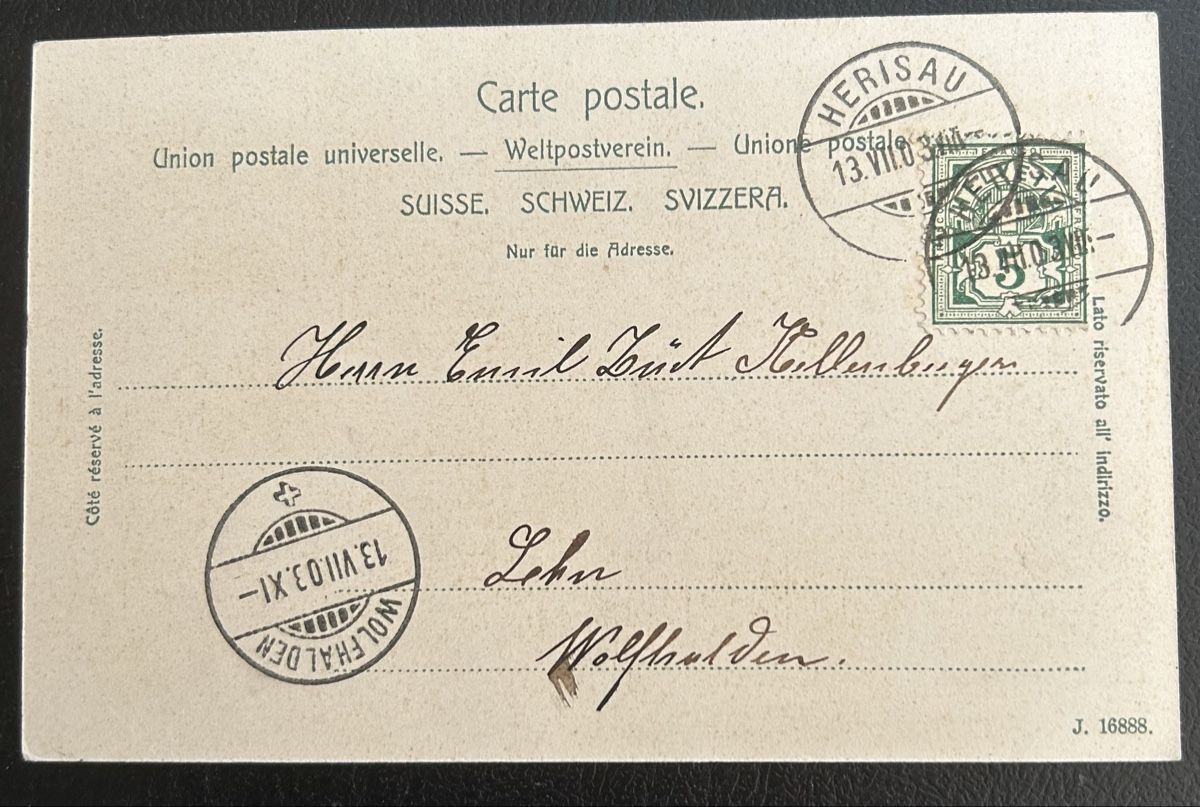 Carte postale.
Union postale universelle. — Weltpostverein. — Unione postale
SUISSE. SCHWEIZ. SVIZZERA.
Nur für die Adresse.
HERISAU
13.VII.03.VIII
HELVETIA
5
13.VII.03.VIII–
Côté réservé à l'adresse.
Lato riservato all' indirizzo.
Herrn Emil Züst Kellenberger
Lehn
Wolfhalden.
13.VII.03.XI–
WOLFHALDEN
J. 16888.